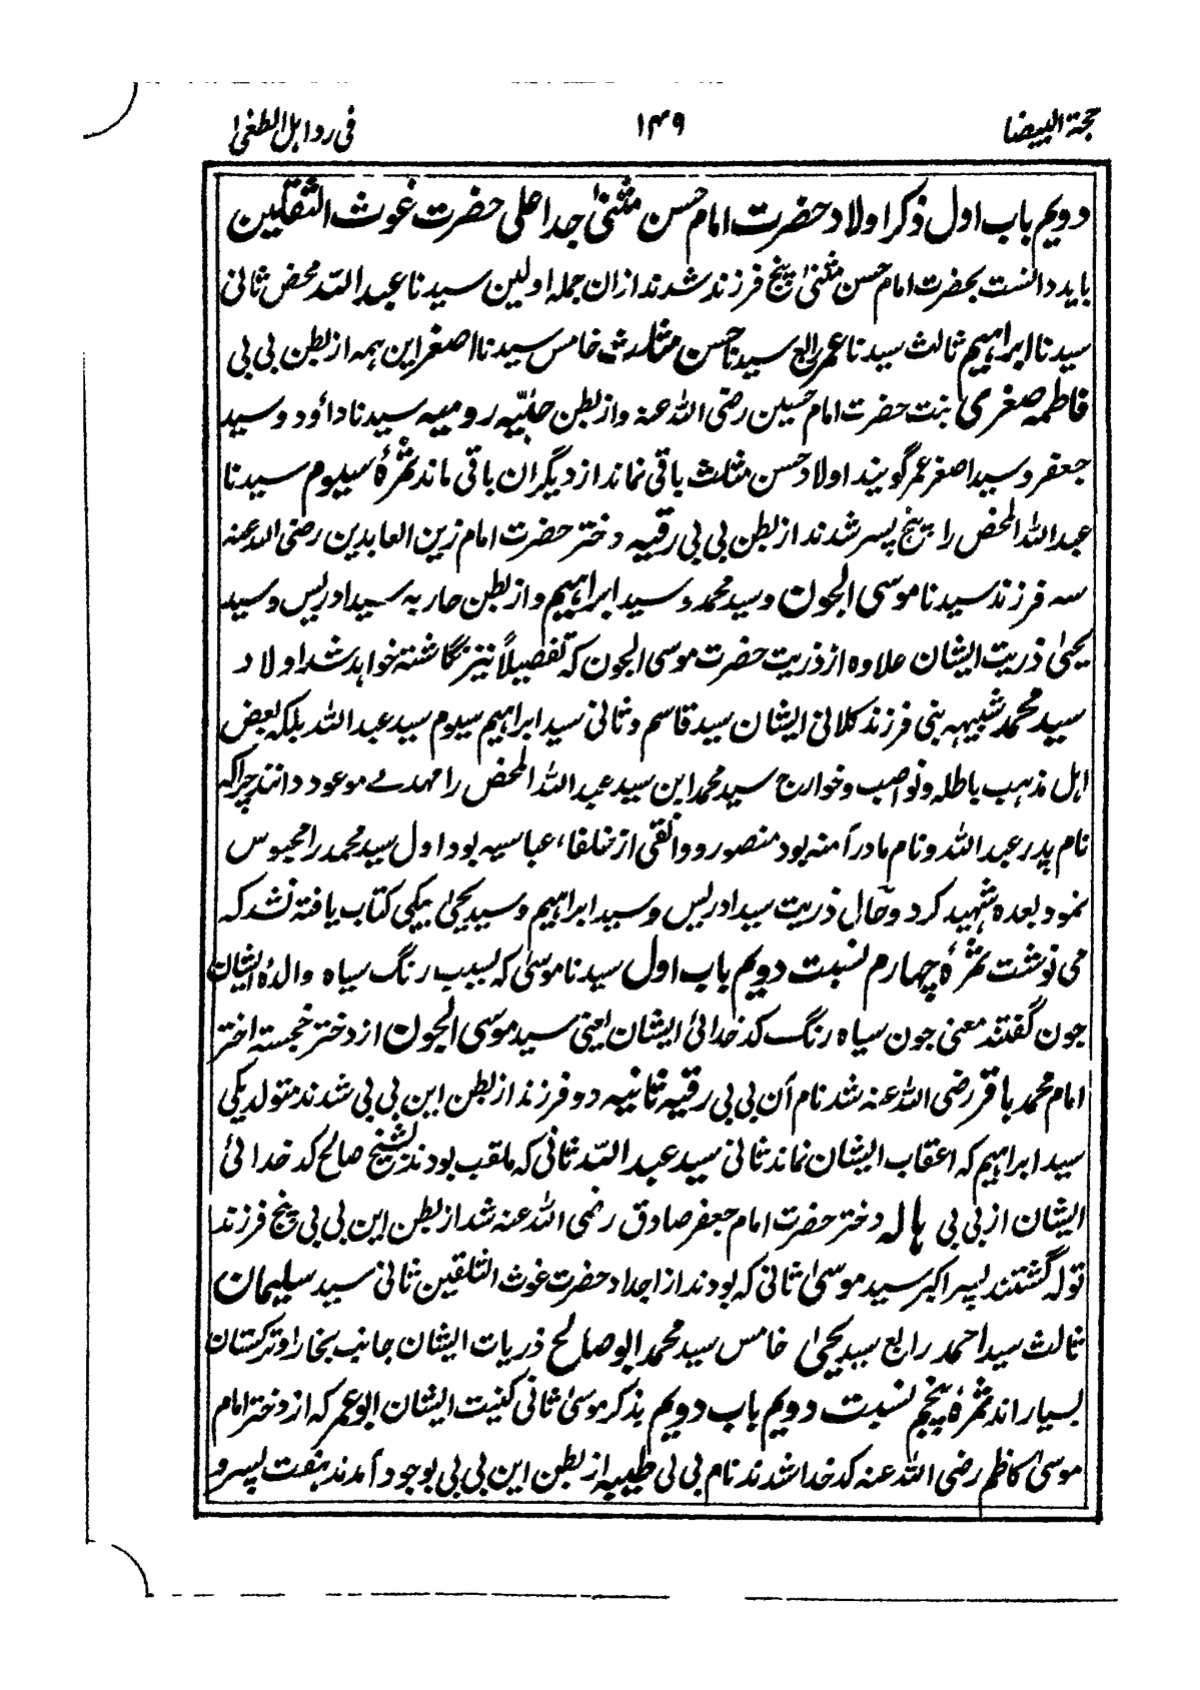 حجة البیضا ۱۴۹ فی رد اہل الطغیٰ
دویم باب اول ذکر اولاد حضرت امام حسن مثنیٰ جد اعلی حضرت غوث الثقلین
باید دانست بحضرت امام حسن مثنیٰ پنج فرزند شدند ازان جملہ اولین سیدنا عبد اللہ محض ثانی
سیدنا ابراہیم ثالث سیدنا عمر رابع سیدنا حسن مثلث خامس سیدنا اصغر این ہمہ از بطن بی بی
فاطمہ صغری بنت حضرت امام حسین رضی اللہ عنہ و از بطن حبیّہ رومیہ سیدنا دائود و سید
جعفر و سید اصغر عمر گویند اولاد حسن مثلث باقی نماند از دیگران باقی ماند ثمرۂ سیوم سیدنا
عبد اللہ المحض را پنج پسر شدند از بطن بی بی رقیہ دختر حضرت امام زین العابدین رضی اللہ عنہ
سہ فرزند سیدنا موسی الجون و سید محمد و سید ابراہیم و از بطن حاربہ سید ادریس و سید
یحییٰ ذریت ایشان علاوہ از ذریت حضرت موسی الجون کہ تفصیلاً نیز نگاشتہ خواہد شد اولاد
سید محمد شبیہہ بنی فرزند کلانی ایشان سید قاسم و ثانی سید ابراہیم سیوم سید عبد اللہ بلکہ بعض
اہل مذہب باطلہ و نواصب و خوارج سید محمد ابن سید عبد اللہ المحض را مہدے موعود دانند چراکہ
نام پدر عبد اللہ و نام مادر آمنہ بود منصور دوانقی از خلفاء عباسیہ بود اول سید محمد را محبوس
نمود بعدہ شہید کرد و حال ذریت سید ادریس و سید ابراہیم و سید یحییٰ بیکی کتاب یافتہ نشد کہ
می نوشت ثمرۂ چہارم نسبت دویم باب اول سیدنا موسیٰ کہ بسبب رنگ سیاہ والدۂ ایشان
جون گفتند معنی جون سیاہ رنگ کدخدائ ایشان یعنی سید موسی الجون از دختر خجستہ اختر
امام محمد باقر رضی اللہ عنہ شد نام آن بی بی رقیہ ثانیہ دو فرزند از بطن این بی بی شدند متولد یکی
سید ابراہیم کہ اعقاب ایشان نماند ثانی سید عبد اللہ ثانی کہ ملقب بودند بشیخ صالح کدخدائ
ایشان از بی بی ہالہ دختر حضرت امام جعفر صادق رضی اللہ عنہ شد از بطن این بی بی پنج فرزند
تولہ گشتند پسر اکبر سید موسیٰ ثانی کہ بودند از اجداد حضرت غوث الثلقین ثانی سید سلیمان
ثالث سید احمد رابع سید یحییٰ خامس سید محمد ابو صالح ذریات ایشان جانب بخارا و ترکستان
بسیار اند ثمرۂ پنجم نسبت دویم باب دویم بذکر موسیٰ ثانی کنیت ایشان ابو عمر کہ از دختر امام
موسیٰ کاظم رضی اللہ عنہ کدخدا شدند نام بی بی طیبہ از بطن این بی بی بوجود آمدند ہفت پسر و